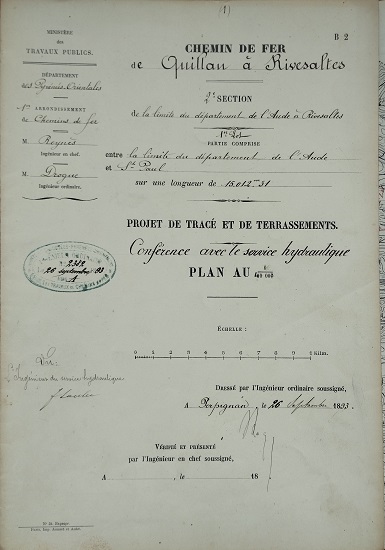 (1)
B 2
MINISTÈRE
des
TRAVAUX PUBLICS.
DÉPARTEMENT
des Pyrénées Orientales
ARRONDISSEMENT
de Chemins de fer
M Reynès
Ingénieur en chef.
M Drogue
Ingénieur ordinaire.
CHEMIN DE FER
de Quillan à Rivesaltes
2e SECTION
de la limite du département de l'Aude à Rivesaltes
1er Lot
PARTIE COMPRISE
entre la limite du département de l'Aude
et St Paul
sur une longueur de 15.012m31
PROJET DE TRACÉ ET DE TERRASSEMENTS.
Conférence avec le service hydraulique
PLAN AU
2312
26 septembre 93
ÉCHELLE:
1 0 1 2 3 4 5 6 7 8 9 1 Kilm.
Vu:
L'Ingénieur du service hydraulique
DRESSÉ par l'Ingénieur ordinaire soussigné,
A Perpignan, le 26 Septembre 1893
VÉRIFIÉ ET PRÉSENTÉ
par l'Ingénieur en chef soussigné,
A , le 18